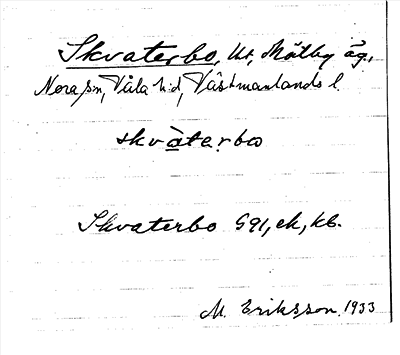 Skvaterbo, ut. Mälby äg.,
Nora sn, Våla hd, Västmanlands l.
skvàtẹrbω
Skvaterbo G91, ek, kb.
M. Eriksson 1933